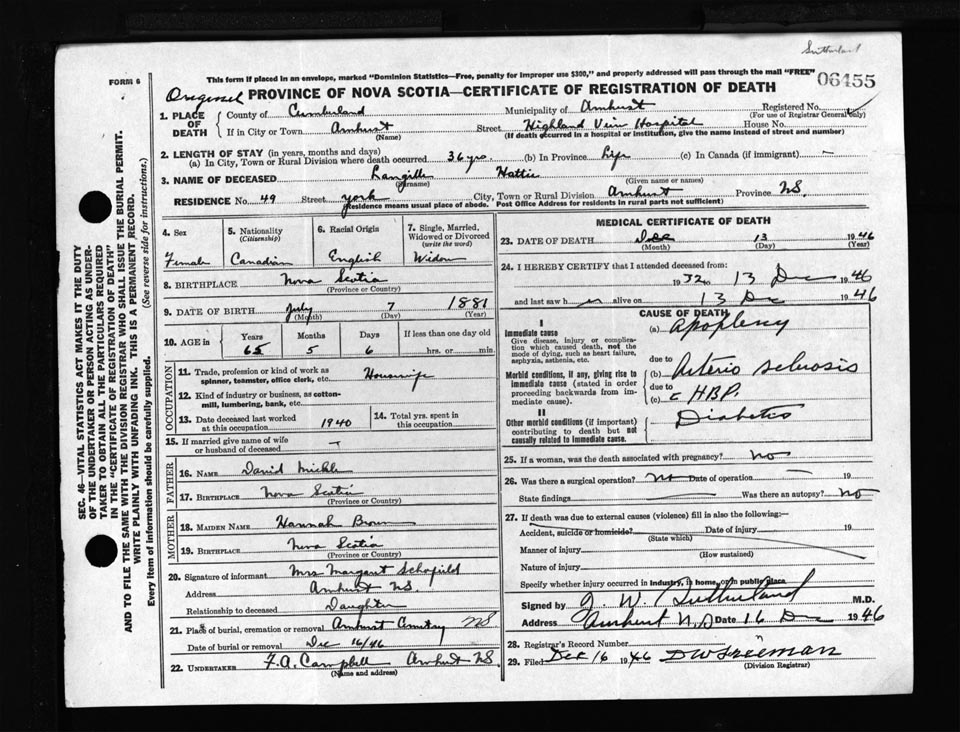 Sutherland
FORM 6
This form if placed in an envelope, marked "Dominion Statistics—Free, penalty for improper use $300," and properly addressed will pass through the mail "FREE"
06455
Original PROVINCE OF NOVA SCOTIA—CERTIFICATE OF REGISTRATION OF DEATH
1. PLACE OF DEATH County of Cumberland Municipality of Amherst Registered No.
(For use of Registrar General only)
If in City or Town Amherst Street Highland View Hospital House No.
(Name) (If death occurred in a hospital or institution, give the name instead of street and number)
2. LENGTH OF STAY (in years, months and days)
(a) In City, Town or Rural Division where death occurred 36 yrs. (b) In Province Life (c) In Canada (if immigrant) —
3. NAME OF DECEASED Langille Hattie
(Surname) (Given name or names)
RESIDENCE No. 49 Street York City, Town or Rural Division Amherst Province NS
(Residence means usual place of abode. Post Office Address for residents in rural parts not sufficient)
4. Sex 5. Nationality (Citizenship) 6. Racial Origin 7. Single, Married, Widowed or Divorced (write the word)
Female Canadian English Widow
8. BIRTHPLACE Nova Scotia
(Province or Country)
9. DATE OF BIRTH July 7 1881
(Month) (Day) (Year)
10. AGE in Years Months Days If less than one day old
65 5 6 hrs. or min.
OCCUPATION
11. Trade, profession or kind of work as spinner, teamster, office clerk, etc. Housewife
12. Kind of industry or business, as cotton-mill, lumbering, bank, etc.
13. Date deceased last worked at this occupation 1940 14. Total yrs. spent in this occupation
15. If married give name of wife or husband of deceased —
FATHER
16. NAME David Mickle
17. BIRTHPLACE Nova Scotia
(Province or Country)
MOTHER
18. MAIDEN NAME Hannah Brown
19. BIRTHPLACE Nova Scotia
(Province or Country)
20. Signature of informant Mrs Margaret Schofield
Address Amherst NS.
Relationship to deceased Daughter
21. Place of burial, cremation or removal Amherst Cemetery NS
Date of burial or removal Dec 16/46
22. UNDERTAKER F.A. Campbell Amherst NS.
(Name and address)
MEDICAL CERTIFICATE OF DEATH
23. DATE OF DEATH Dec 13 1946
(Month) (Day) (Year)
24. I HEREBY CERTIFY that I attended deceased from:
1932 to 13 Dec 1946
and last saw h er alive on 13 Dec 1946
CAUSE OF DEATH
I
Immediate cause (a) Apoplexy
Give disease, injury or complication which caused death, not the mode of dying, such as heart failure, asphyxia, asthenia, etc.
due to
Morbid conditions, if any, giving rise to immediate cause (stated in order proceeding backwards from immediate cause). (b) Arterio sclerosis
due to
(c) c HBP.
II
Other morbid conditions (if important) contributing to death but not causally related to immediate cause. Diabetes
25. If a woman, was the death associated with pregnancy? No
26. Was there a surgical operation? No Date of operation — 19
State findings Was there an autopsy? No
27. If death was due to external causes (violence) fill in also the following:—
Accident, suicide or homicide? Date of injury 19
(State which)
Manner of injury
(How sustained)
Nature of injury
Specify whether injury occurred in industry, in home, or in public place
Signed by J. W. Sutherland M.D.
Address Amherst N.S Date 16 Dec 1946
28. Registrar's Record Number
29. Filed Dec 16 1946 DW Freeman
(Division Registrar)
SEC. 46—VITAL STATISTICS ACT MAKES IT THE DUTY
OF THE UNDERTAKER OR PERSON ACTING AS UNDER-
TAKER TO OBTAIN ALL THE PARTICULARS REQUIRED
IN THE "CERTIFICATE OF REGISTRATION OF DEATH"
AND TO FILE THE SAME WITH THE DIVISION REGISTRAR WHO SHALL ISSUE THE BURIAL PERMIT.
WRITE PLAINLY WITH UNFADING INK. THIS IS A PERMANENT RECORD.
Every item of information should be carefully supplied. (See reverse side for instructions.)